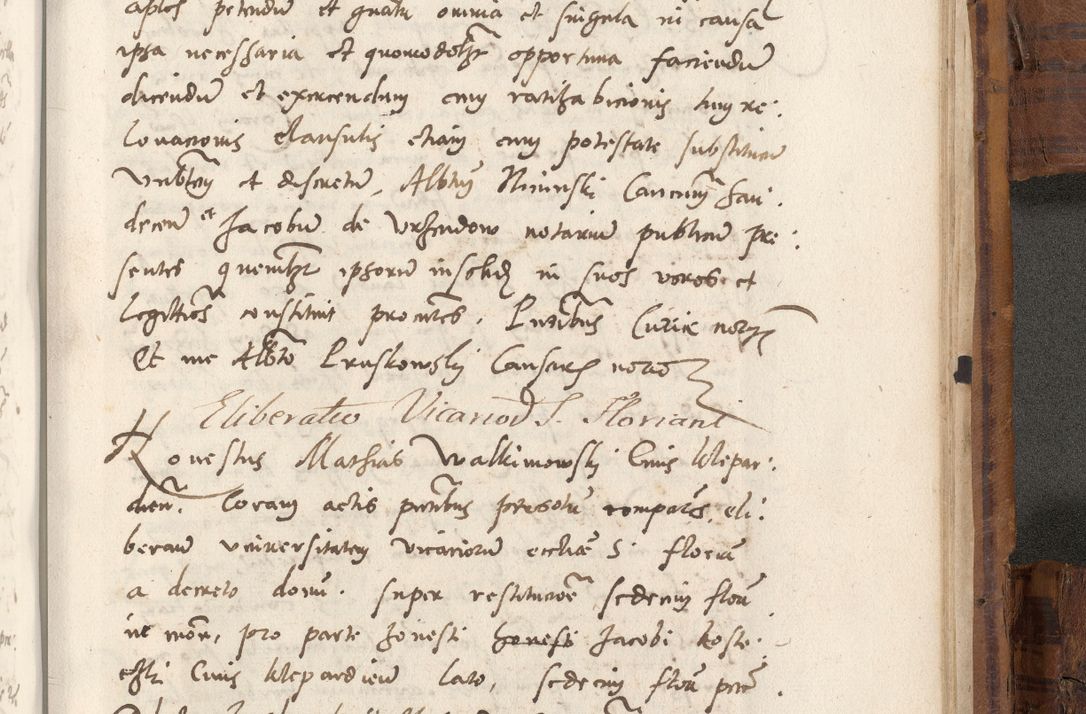 aplos petendum et gnatr omnia et singula in causa
ipsa necessaria et quomodolibet opportuna faciendum
dicendum et exercendum cum ratihabicionis tum re:
levacionis clausulis etiam cum potestate substituen
et discretum Albtum Nininski Cancrum San:
decem et Jacobum de Urzendow notarium publicum pre:
sentes quemlibet ipsorum insolid in suos veros et
legittimos constituit procutores. Pntibus Curiae notrys
Et me Albto Pruskowski Consist noto
Eliberatio Vicarior S. Floriani
Honestus Mathias Walkimowski Civis Klepar:
dien. Coram actis pntibus personaliter comparens, eli:
beravit universitatem vicariorum eccliae S. Floria
a decreto domi. super restitucione sedecim floren
in mon. pro parte honesti honesti Jacobi koste:
Civis Klepardien lato, sedecim floren